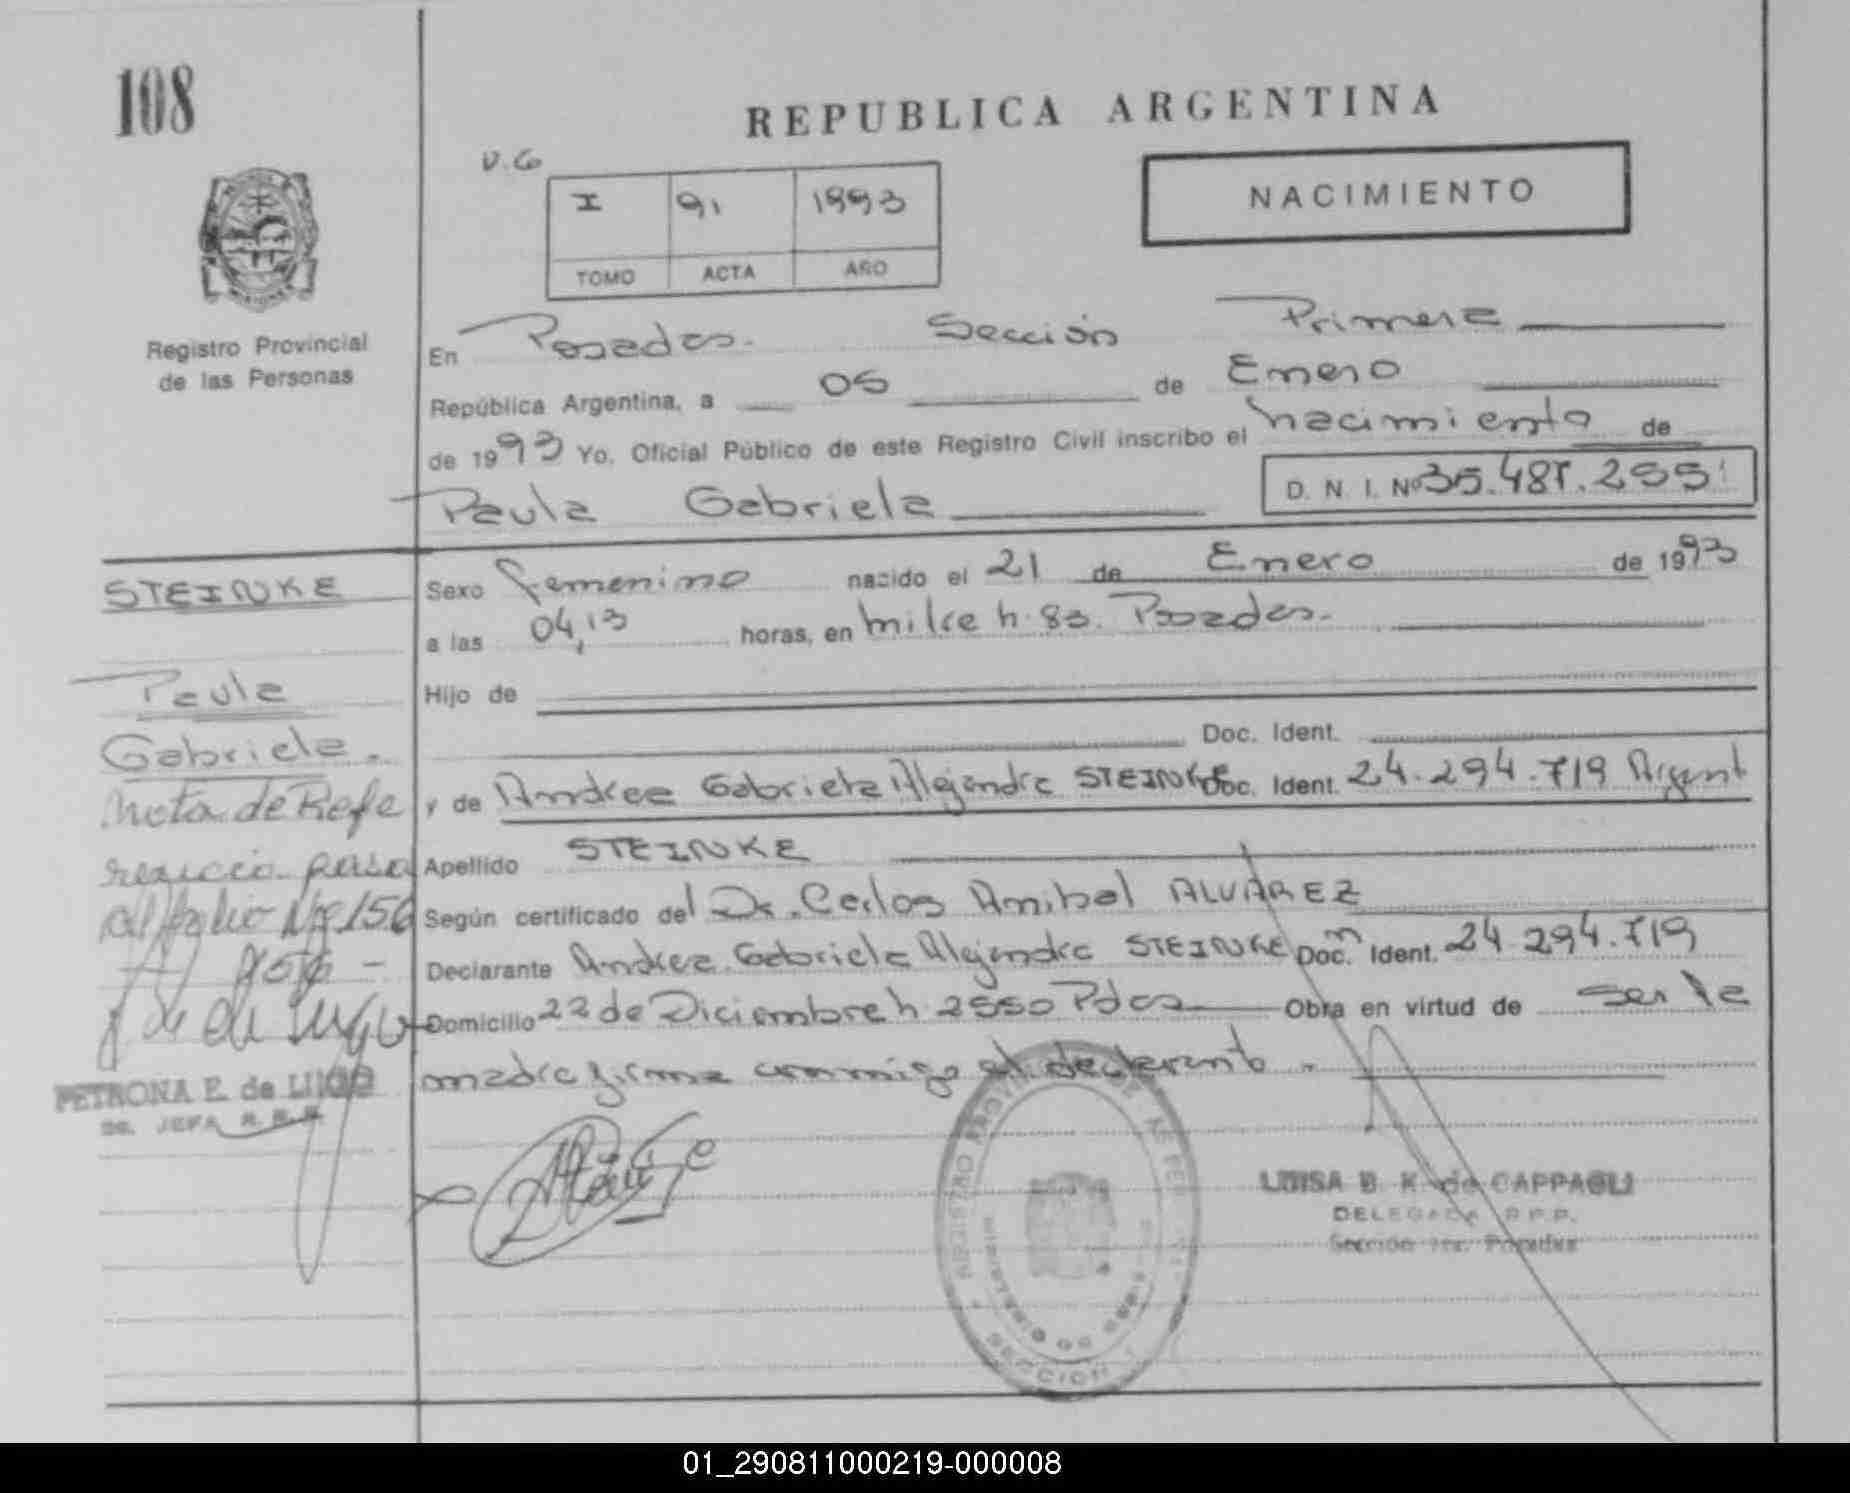 108
REPUBLICA ARGENTINA
NACIMIENTO
I 91 1993
TOMO ACTA AÑO
Registro Provincial
de las Personas
En Posadas. Sección Primera
República Argentina, a 05 de Enero
de 1993 Yo, Oficial Público de este Registro Civil inscribo el nacimiento de
Paula Gabriela D. N. I. Nº 35.487.255
STEINKE
Paula
Gabriela.
Nota de Refe
rencia pasa
al folio Nº 156
PETRONA E. de LUGO
JEFA
Sexo femenino nacido el 21 de Enero de 1993
a las 04,13 horas, en Posadas.
Hijo de
Doc. Ident.
y de Andrea Gabriela Alejandra STEINKE Doc. Ident. 24.294.719 Argent
Apellido STEINKE
Según certificado del Dr. Carlos Anibal ALVAREZ
Declarante Andrea Gabriela Alejandra STEINKE Doc. Ident. 24.294.719
Domicilio 22 de Diciembre n. 2550 Pdas Obra en virtud de ser la
madre firma conmigo el declarante.
LUISA B. K. de CAPPAGLI
DELEGADA R.P.P.
Sección 1ra. Posadas
01_290811000219-000008